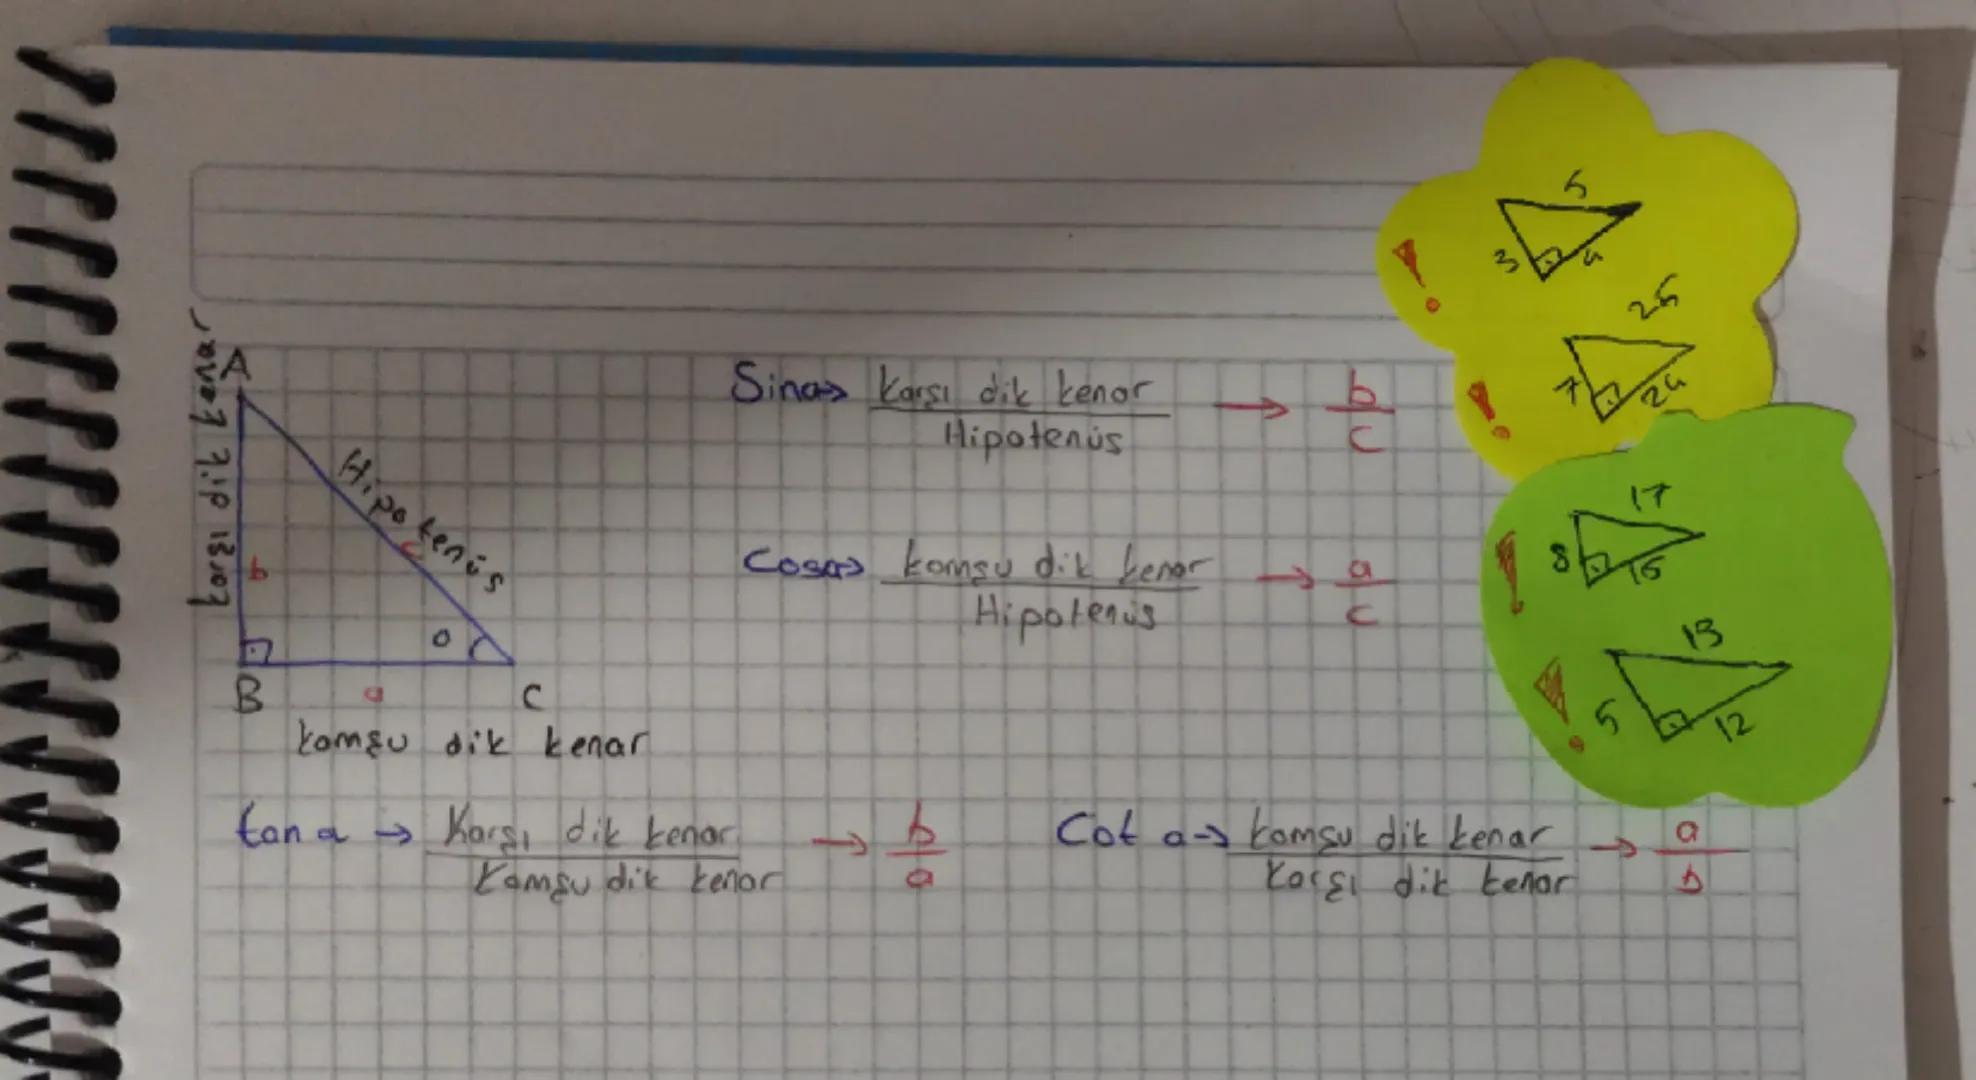 A
Karşı dik kenar
b
Hipotenüs
c
a
B
a
C
komşu dik kenar
Sina→ Karşı dik kenar → b
Hipotenüs c
Cosa→ komşu dik kenar → a
Hipotenüs c
tan a → Karşı dik kenar → b
Komşu dik kenar a
Cot a→ komşu dik kenar → a
Karşı dik kenar b
5
! 3 4
25
! 7 24
17
! 8 15
13
! 5 12